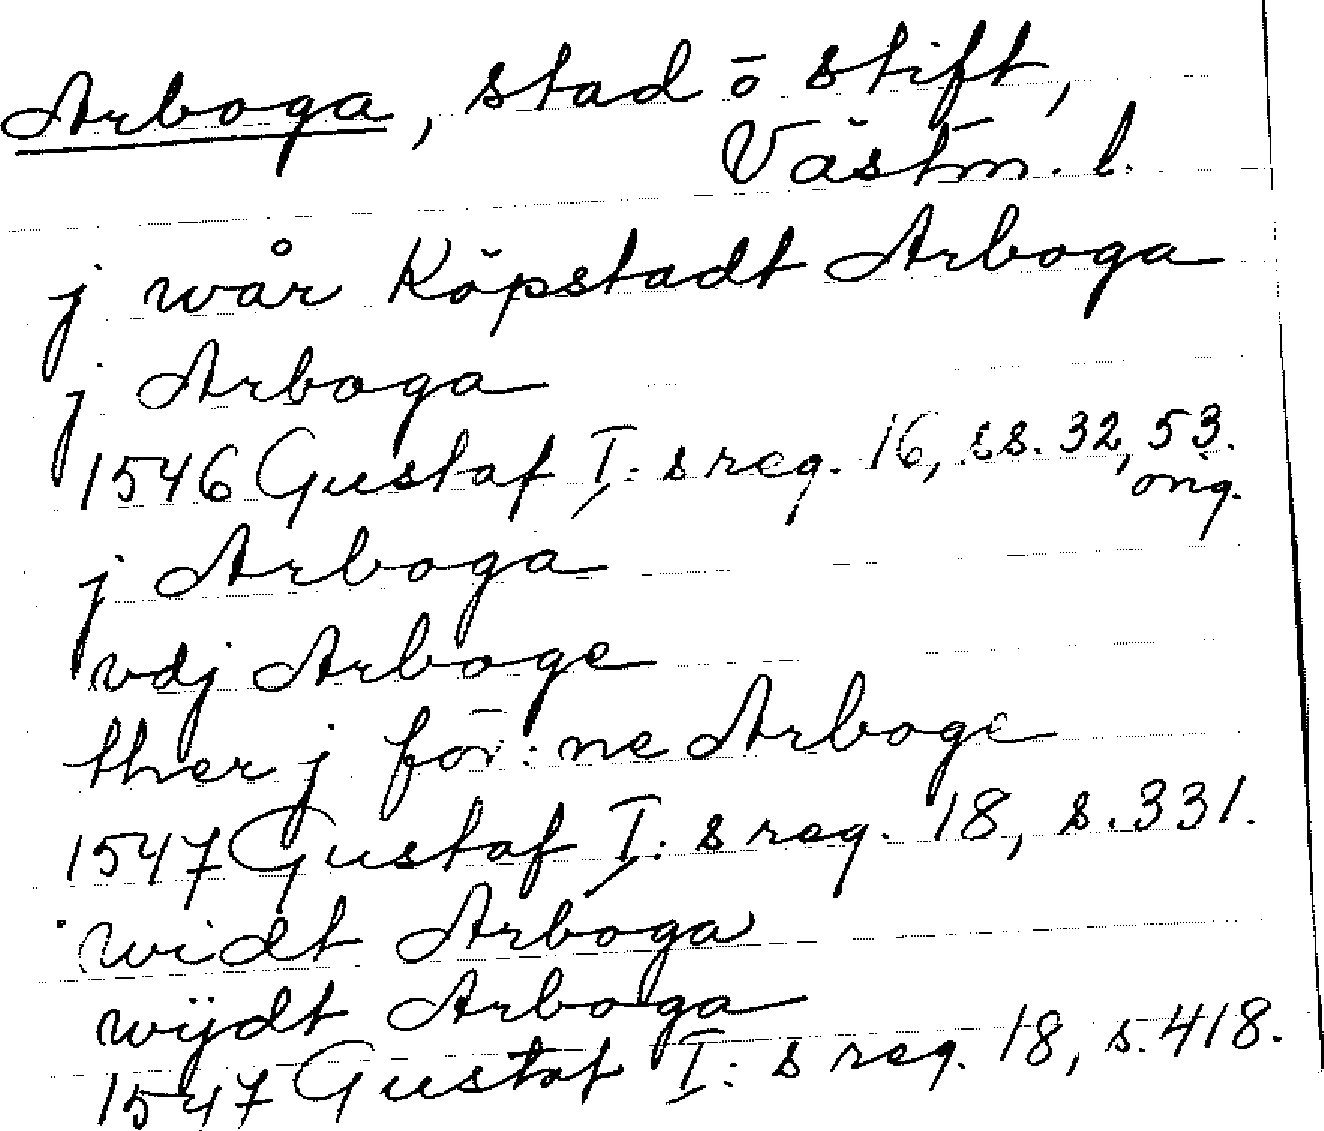 Arboga, stad o stift,
Västm. l.
j wår Köpstadt Arboga
j Arboga
1546 Gustaf I:s reg. 16, ss. 32, 53.
orig.
j Arboga
vdj Arboge
ther j för:ne Arboge
1547 Gustaf I:s reg. 18, s. 331.
widt Arboga
wijdt Arboga
1547 Gustaf I:s reg. 18, s. 418.